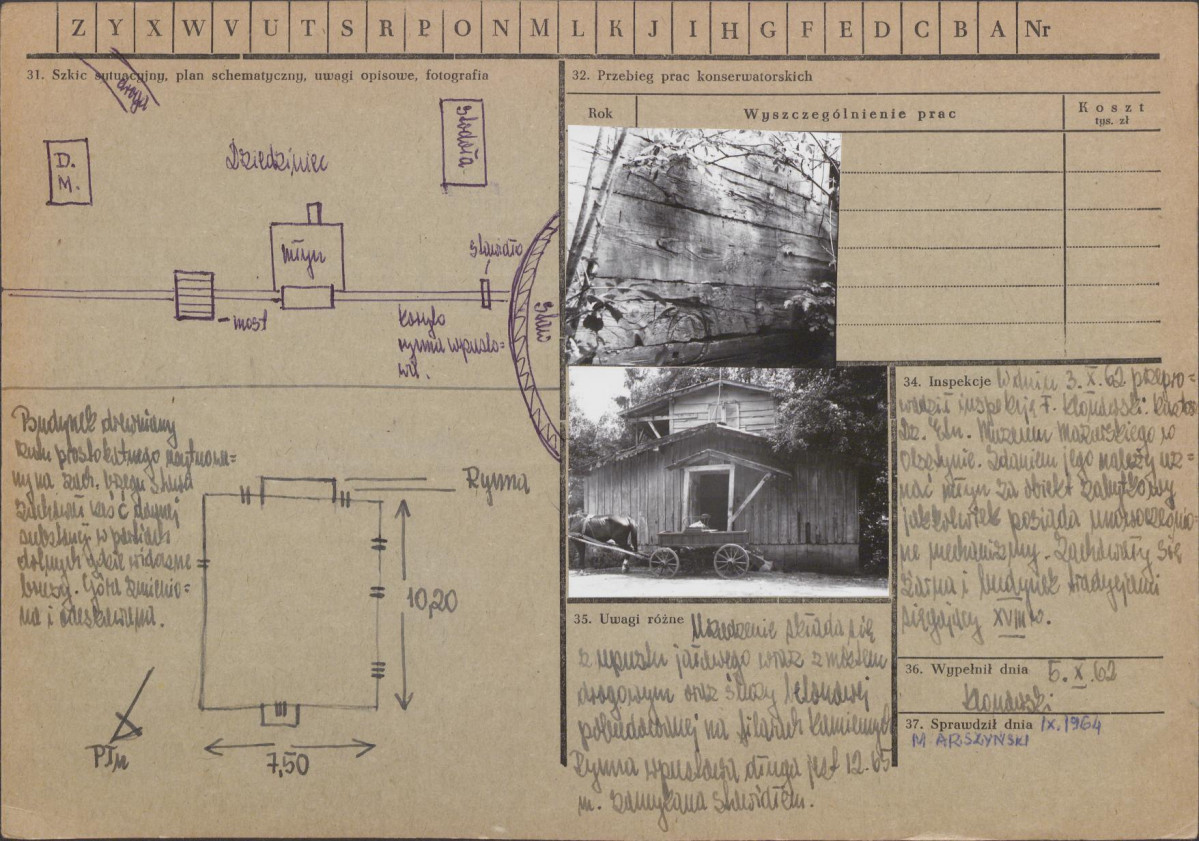 Z Y X W V U T S R P O N M L K J I H G F E D C B A Nr
31. Szkic sytuacyjny, plan schematyczny, uwagi opisowe, fotografia
droga
D.
M.
Dziedziniec
Stodoła
młyn
stawidło
staw
- most
koryto
rynna wpusto=
wa.
Budynek drewniany
rzutu prostokątnego usytuowa=
ny na zach. brzegu stawu
zachował część dawnej
substancji w partiach
dolnych gdzie widoczne
Góra zmienio=
na i odeskowana.
Rynna
10,20
7,50
PŁn
32. Przebieg prac konserwatorskich
Rok
Wyszczególnienie prac
Koszt
tys. zł
34. Inspekcje W dniu 3.X.62 przepro=
wadził inspekcję F. Klonowski
Dz. Etn. Muzeum Mazurskiego w
Olsztynie. Zdaniem jego należy uz=
nać młyn za obiekt zabytkowy
jakkolwiek posiada unowocześnio=
ne mechanizmy. Zachowały się
żarna i budynek tradycjami
sięgający XVIII w.
35. Uwagi różne Urządzenie składa się
z upustu jałowego wraz z mostem
drogowym oraz śluzy betonowej
pobudowanej na filarach kamiennych
Rynna wpustowa długa jest 12.65
m. zamykana stawidłem.
36. Wypełnił dnia 5.X.62
Klonowski
37. Sprawdził dnia IX.1964
M. ARSZYŃSKI